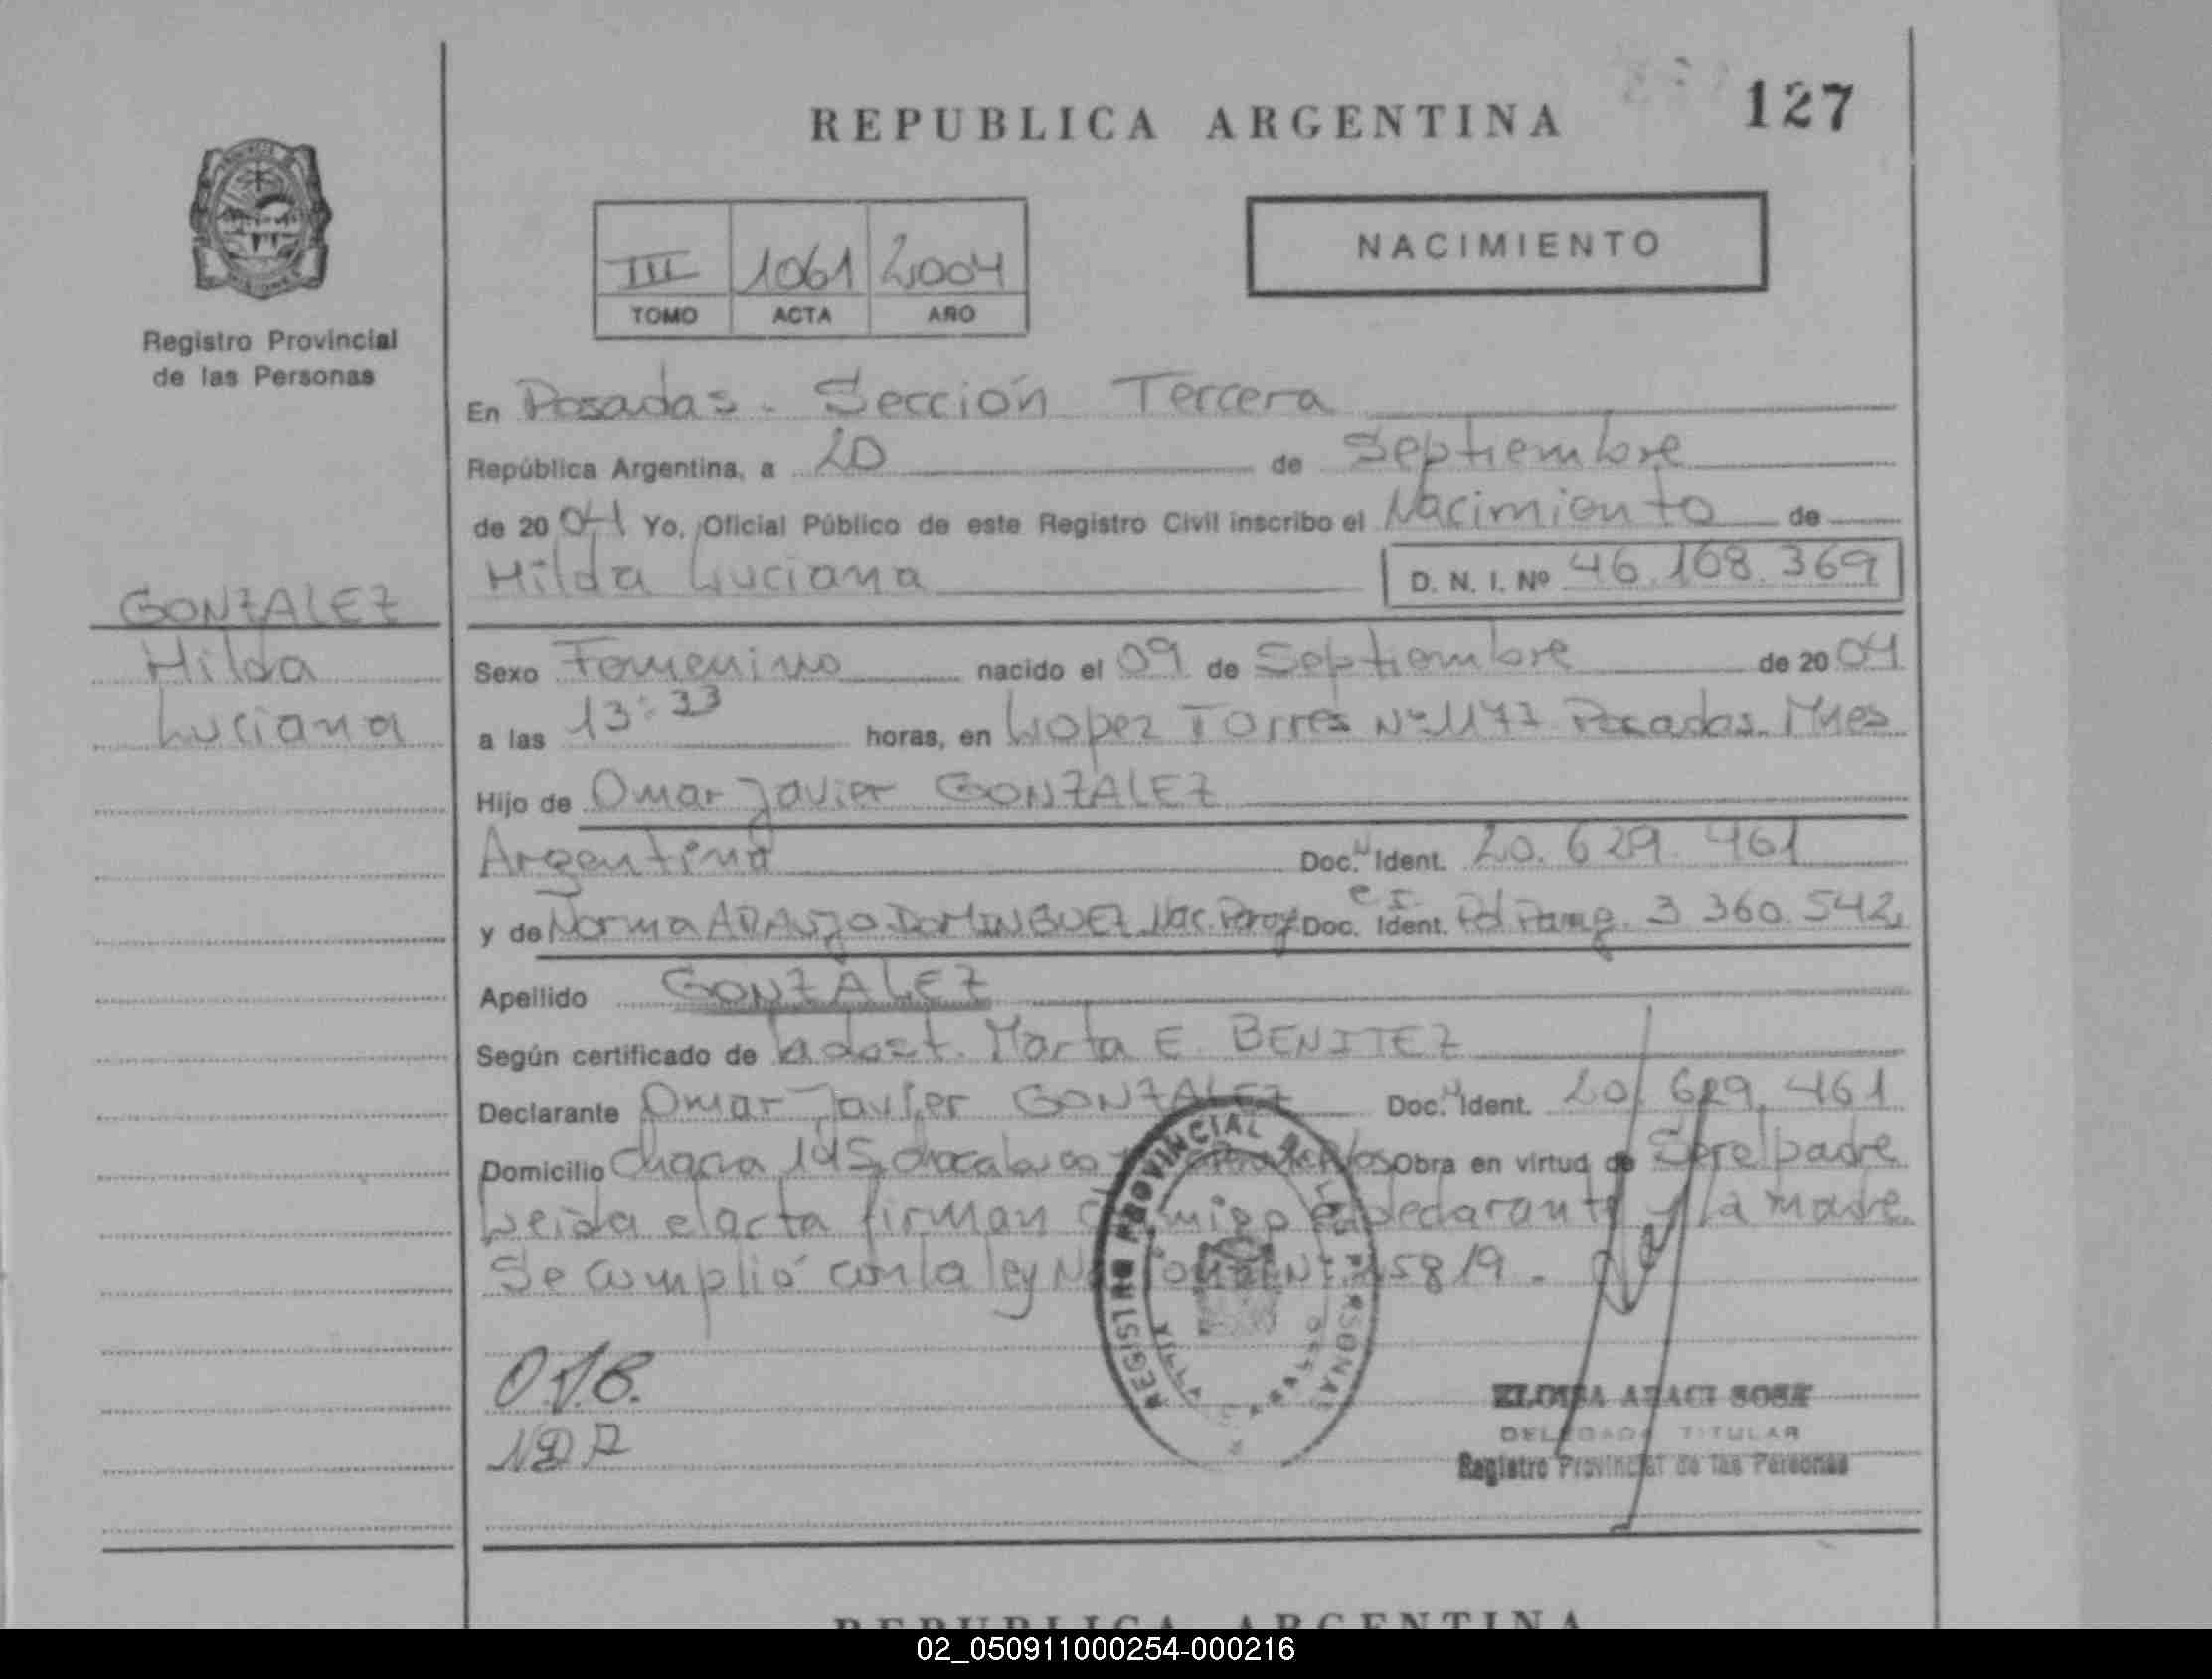 REPUBLICA ARGENTINA
127
III 1061 2004
TOMO ACTA AÑO
NACIMIENTO
Registro Provincial
de las Personas
GONZALEZ
Hilda
Luciana
En Posadas - Sección Tercera
República Argentina, a 20 de Septiembre
de 2004 Yo, Oficial Público de este Registro Civil inscribo el Nacimiento de
Hilda Luciana D. N. I. Nº 46.168.369
Sexo Femenino nacido el 09 de Septiembre de 2004
a las 13:33 horas, en Lopez Torres Nº 1177 Posadas. Mnes
Hijo de Omar Javier GONZALEZ
Argentina Doc. N Ident. 20.629.461
y de Norma ARAUJO DOMINGUEZ Nac. Paray Doc. e I. Ident. Pol Parag. 3 360.542
Apellido GONZALEZ
Según certificado de la obst. Marta E. BENITEZ
Declarante Omar Javier GONZALEZ Doc. N Ident. 20.629.461
Domicilio Chacra 145 Obra en virtud de Ser el padre
Leida el acta firman el Declarante y la madre.
Se cumplió con la ley
O.J.B.
REGISTRO PROVINCIAL DE LAS PERSONAS
ELOISA ARACI SOSA
DELEGADA TITULAR
Registro Provincial de las Personas
REPUBLICA ARGENTINA
02_050911000254-000216